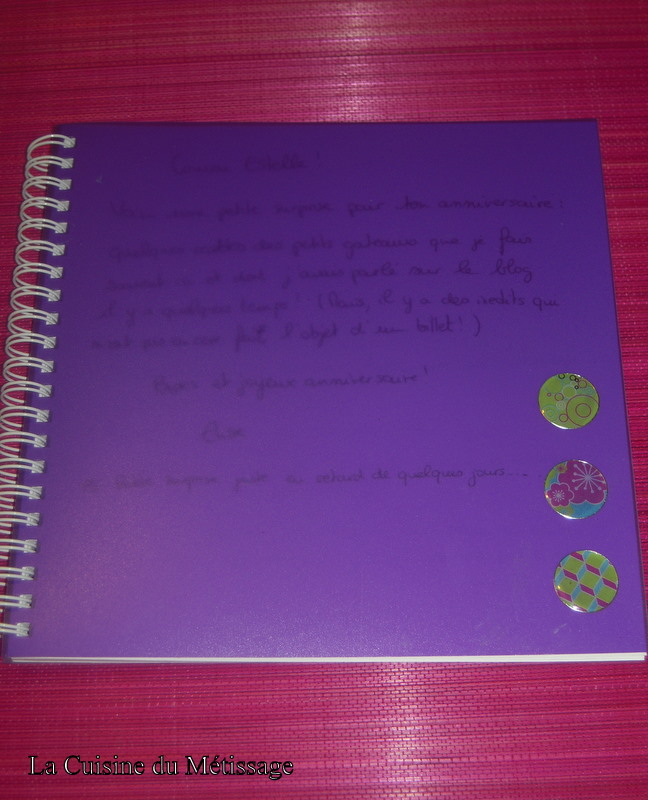 Coucou Estelle !
Voici une petite surprise pour ton anniversaire :
quelques recettes des petits gateaux que je fais
souvent ici et dont j'avais parlé sur le blog
il y a quelques temps ! (Pour, il y a des inédits qui
n'ont pas encore fait l'objet d'un billet ! )
Bisous et joyeux anniversaire !
petite surprise juste en retard de quelques jours...
La Cuisine du Métissage